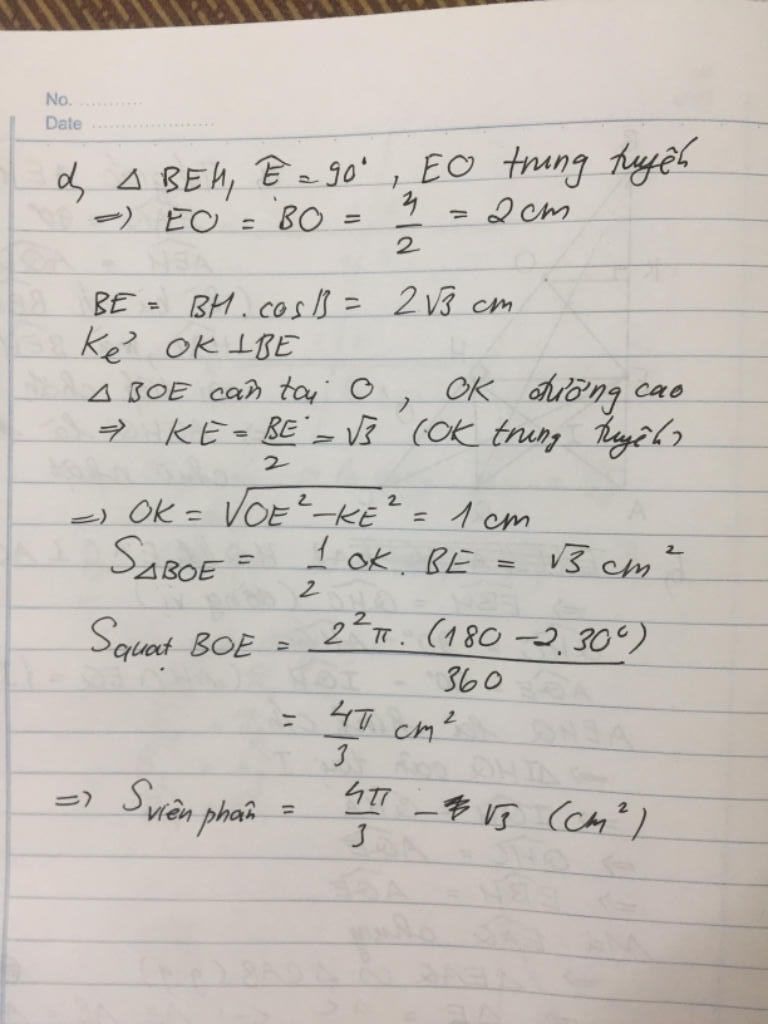 No. ............
Date .....................
d, △ BEH, Ê = 90°, EO trung tuyến
=> EO = BO = 4/2 = 2 cm
BE = BH. cosB = 2√3 cm
Kẻ OK ⊥ BE
△ BOE cân tại O, OK đường cao
=> KE = BE/2 = √3 (OK trung tuyến)
=> OK = √(OE² - KE²) = 1 cm
S△BOE = 1/2 OK. BE = √3 cm²
Squạt BOE = 2²π. (180 - 2.30°)/360
= 4π/3 cm²
=> Sviên phân = 4π/3 - √3 (cm²)